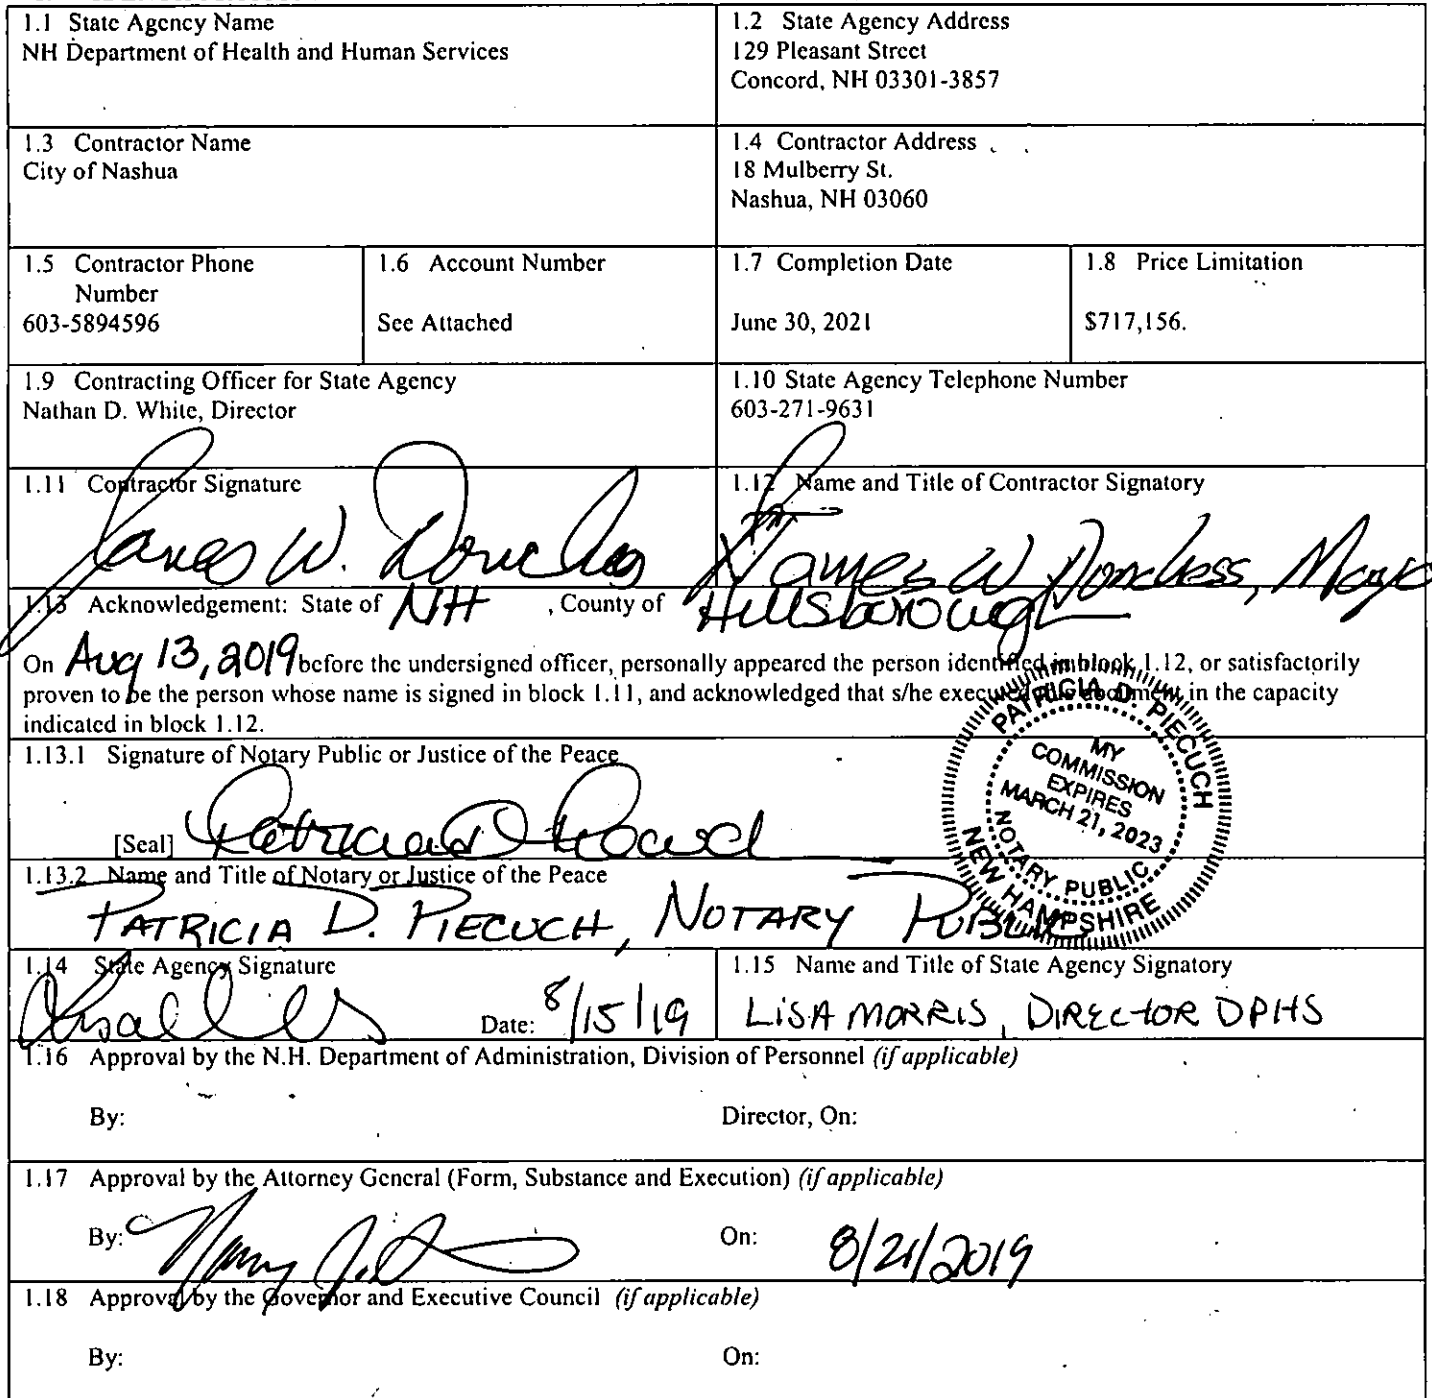 1.1 State Agency Name
NH Department of Health and Human Services
1.2 State Agency Address
129 Pleasant Street
Concord, NH 03301-3857
1.3 Contractor Name
City of Nashua
1.4 Contractor Address
18 Mulberry St.
Nashua, NH 03060
1.5 Contractor Phone
Number
603-5894596
1.6 Account Number
See Attached
1.7 Completion Date
June 30, 2021
1.8 Price Limitation
$717,156.
1.9 Contracting Officer for State Agency
Nathan D. White, Director
1.10 State Agency Telephone Number
603-271-9631
1.11 Contractor Signature
James W. Donchess
1.12 Name and Title of Contractor Signatory
James W Donchess, Mayor
1.13 Acknowledgement: State of NH , County of Hillsborough
On Aug 13, 2019 before the undersigned officer, personally appeared the person identified in block 1.12, or satisfactorily
proven to be the person whose name is signed in block 1.11, and acknowledged that s/he executed this document in the capacity
indicated in block 1.12.
1.13.1 Signature of Notary Public or Justice of the Peace
[Seal] Patricia D Piecuch
PATRICIA D. PIECUCH
MY
COMMISSION
EXPIRES
MARCH 21, 2023
NOTARY PUBLIC
NEW HAMPSHIRE
1.13.2 Name and Title of Notary or Justice of the Peace
PATRICIA D. PIECUCH, NOTARY PUBLIC
1.14 State Agency Signature
Date: 8/15/19
1.15 Name and Title of State Agency Signatory
LISA MORRIS, DIRECTOR DPHS
1.16 Approval by the N.H. Department of Administration, Division of Personnel (if applicable)
By: Director, On:
1.17 Approval by the Attorney General (Form, Substance and Execution) (if applicable)
By: On: 8/21/2019
1.18 Approval by the Governor and Executive Council (if applicable)
By: On: